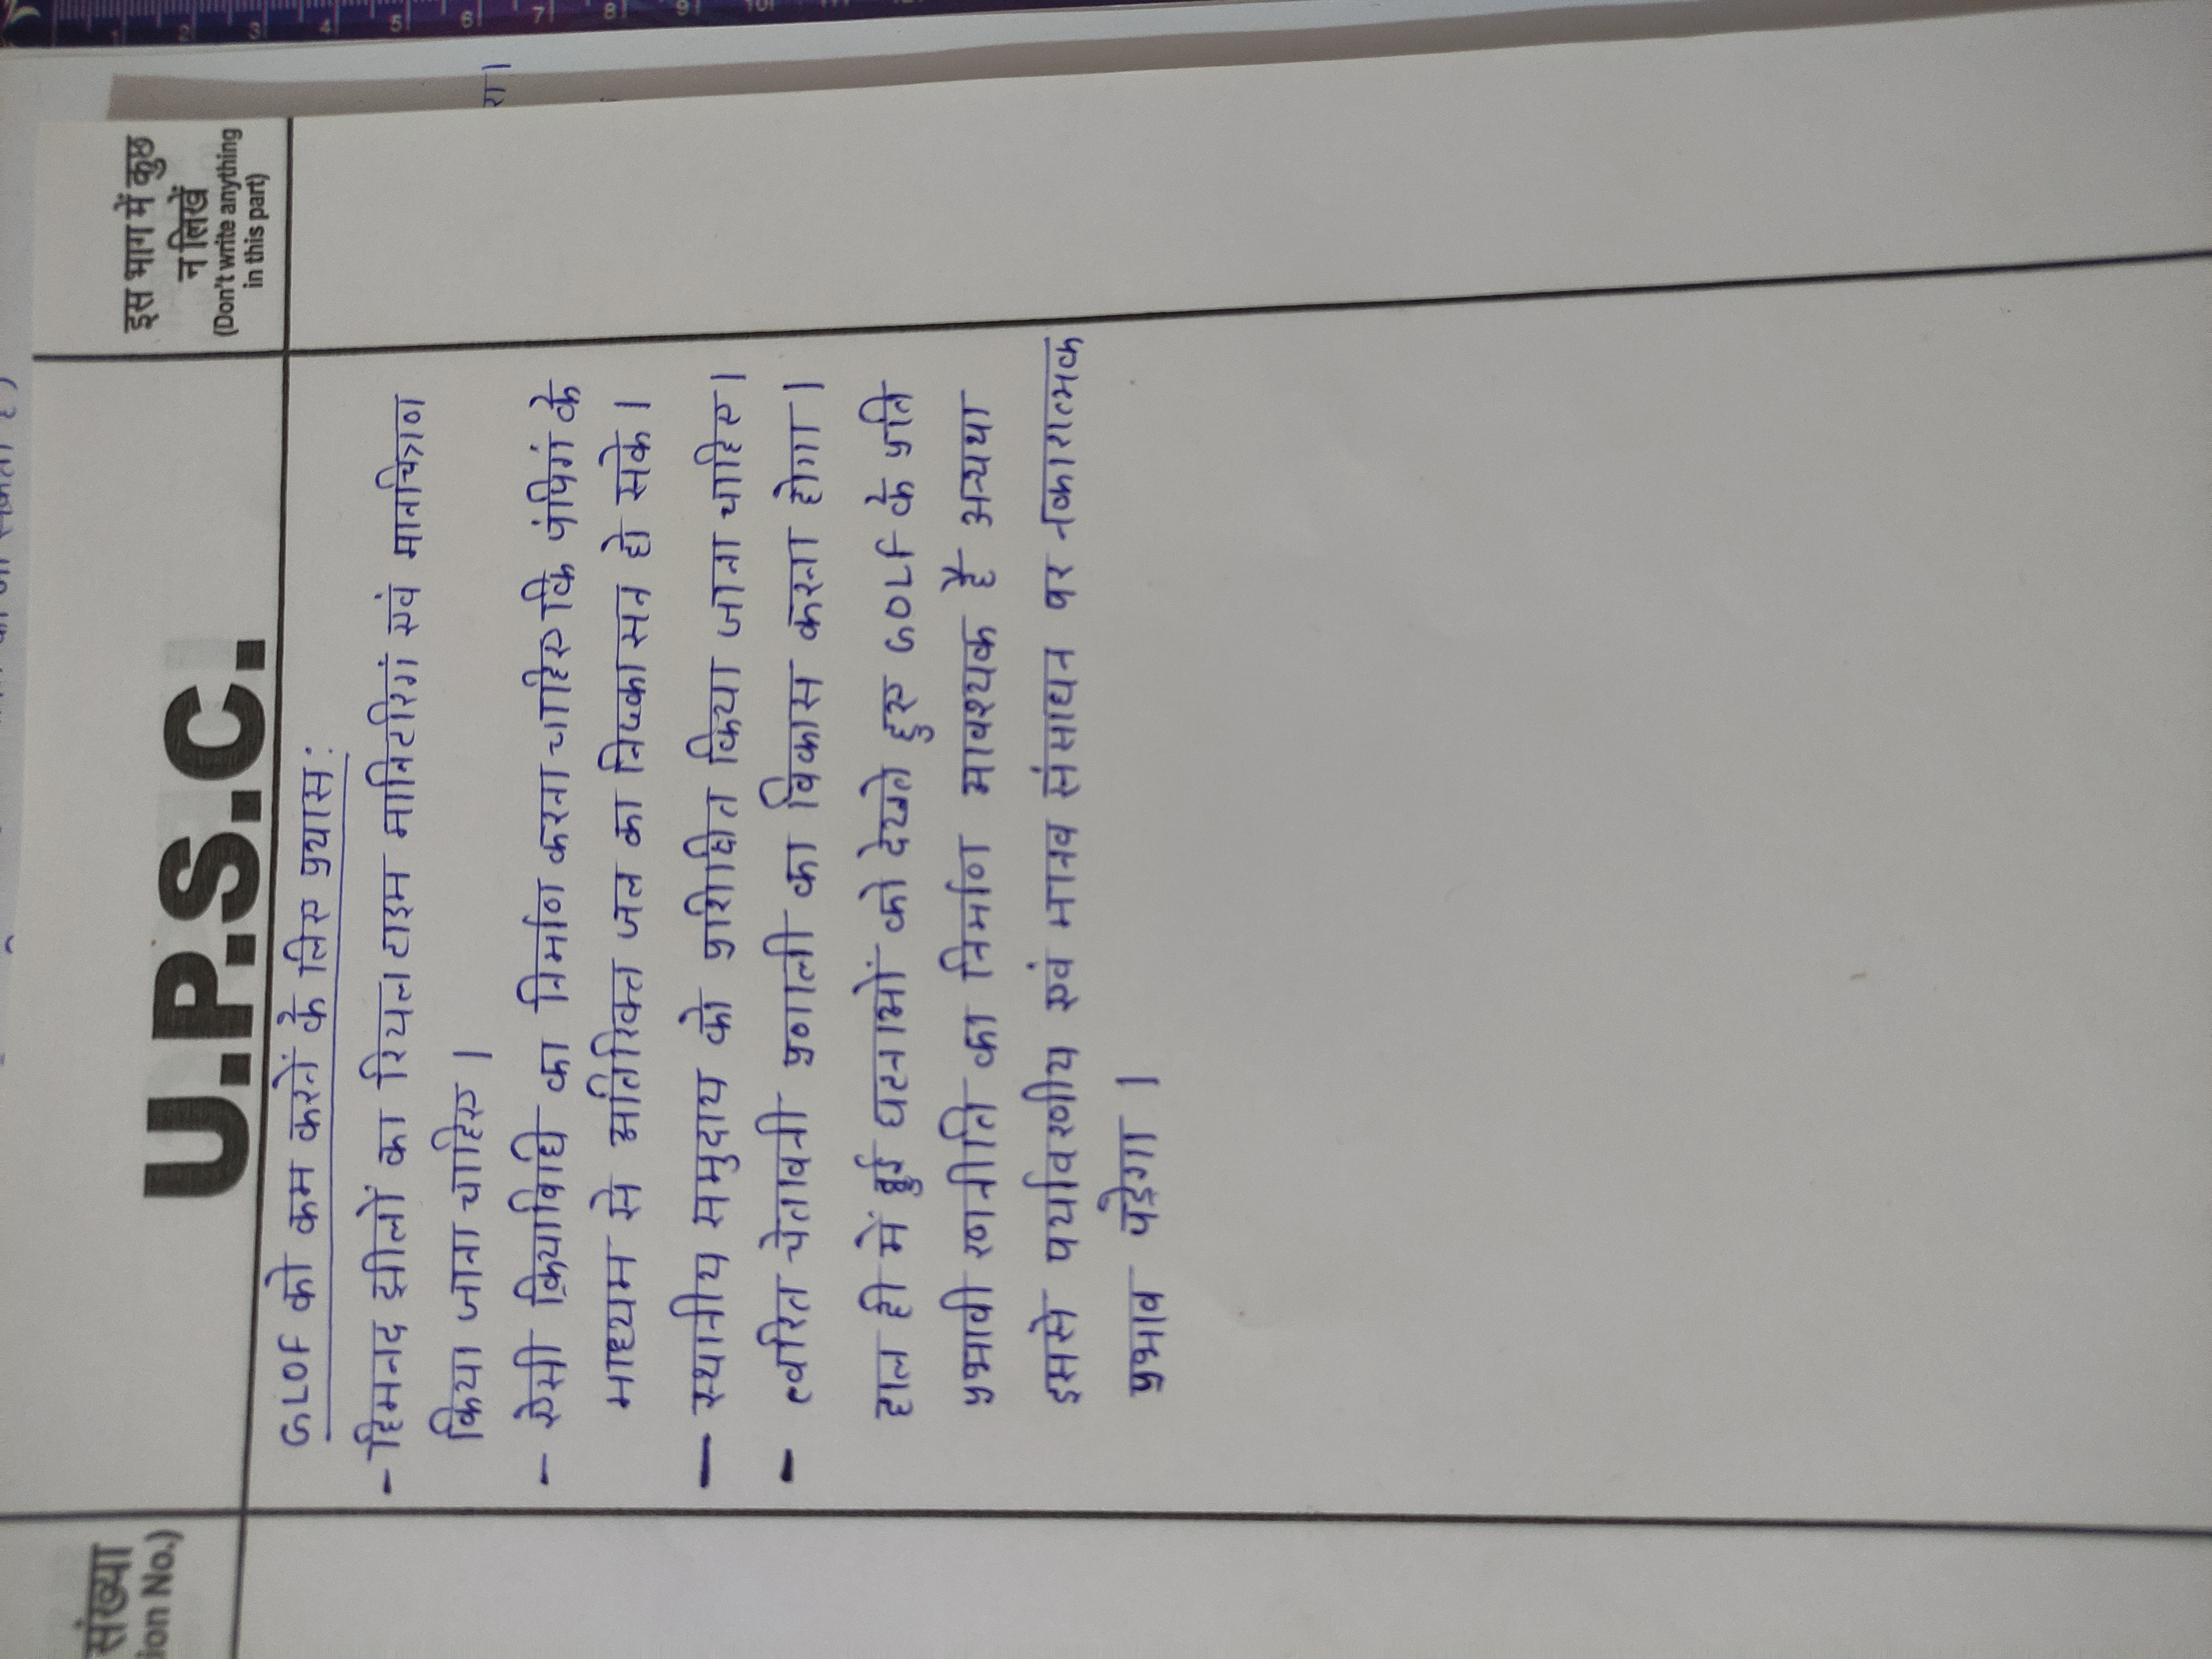 U.P.S.C.
संख्या
ion No.)
इस भाग में कुछ
न लिखें
(Don't write anything
in this part)
GLOF को कम करनें के लिए प्रयास:
- हिमनद झीलों का रियल टाइम मानिटरिगं एवं मानचित्रण
किया जाना चाहिए।
- ऐसी क्रियाविधि का निर्माण करना चाहिए कि पंपिगं के
माध्यम से अतिरिक्त जल का निष्कासन हो सके।
- स्थानीय समुदाय को प्रशिक्षित किया जाना चाहिए।
- त्वरित चेतावनी प्रणाली का विकास करना होगा।
हाल ही में हुई घटनाओं को देखते हुए GOLF के प्रति
प्रभावी रणनीति का निर्माण आवश्यक है अन्यथा
इससे पर्यावरणीय एवं मानव संसाधन पर नकारात्मक
प्रभाव पड़ेगा।
1 2 3 4 5 6 7 8 9 10